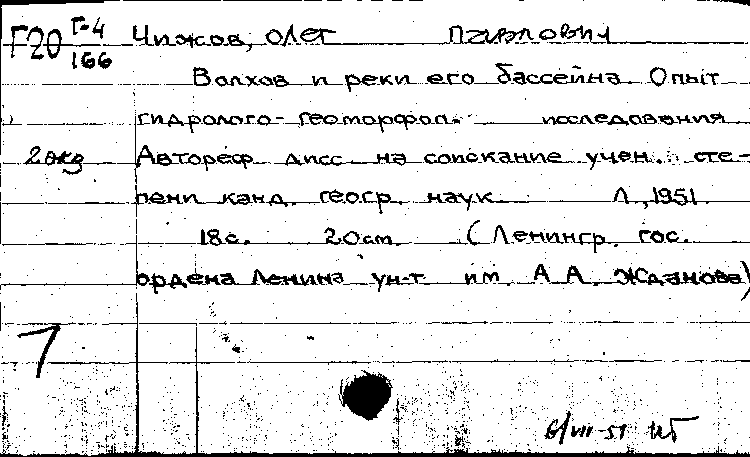 Г20 Г-4 Чижов, Олег Павлович
166
Волхов и реки его бассейна. Опыт
гидролого-геоморфол. исследования
2 экз Автореф. дисс. на соискание учен. сте-
пени канд. геогр. наук. Л., 1951.
18с. 20см. (Ленингр. гос.
ордена Ленина ун-т им. А. А. Жданова)
6/VIII-51